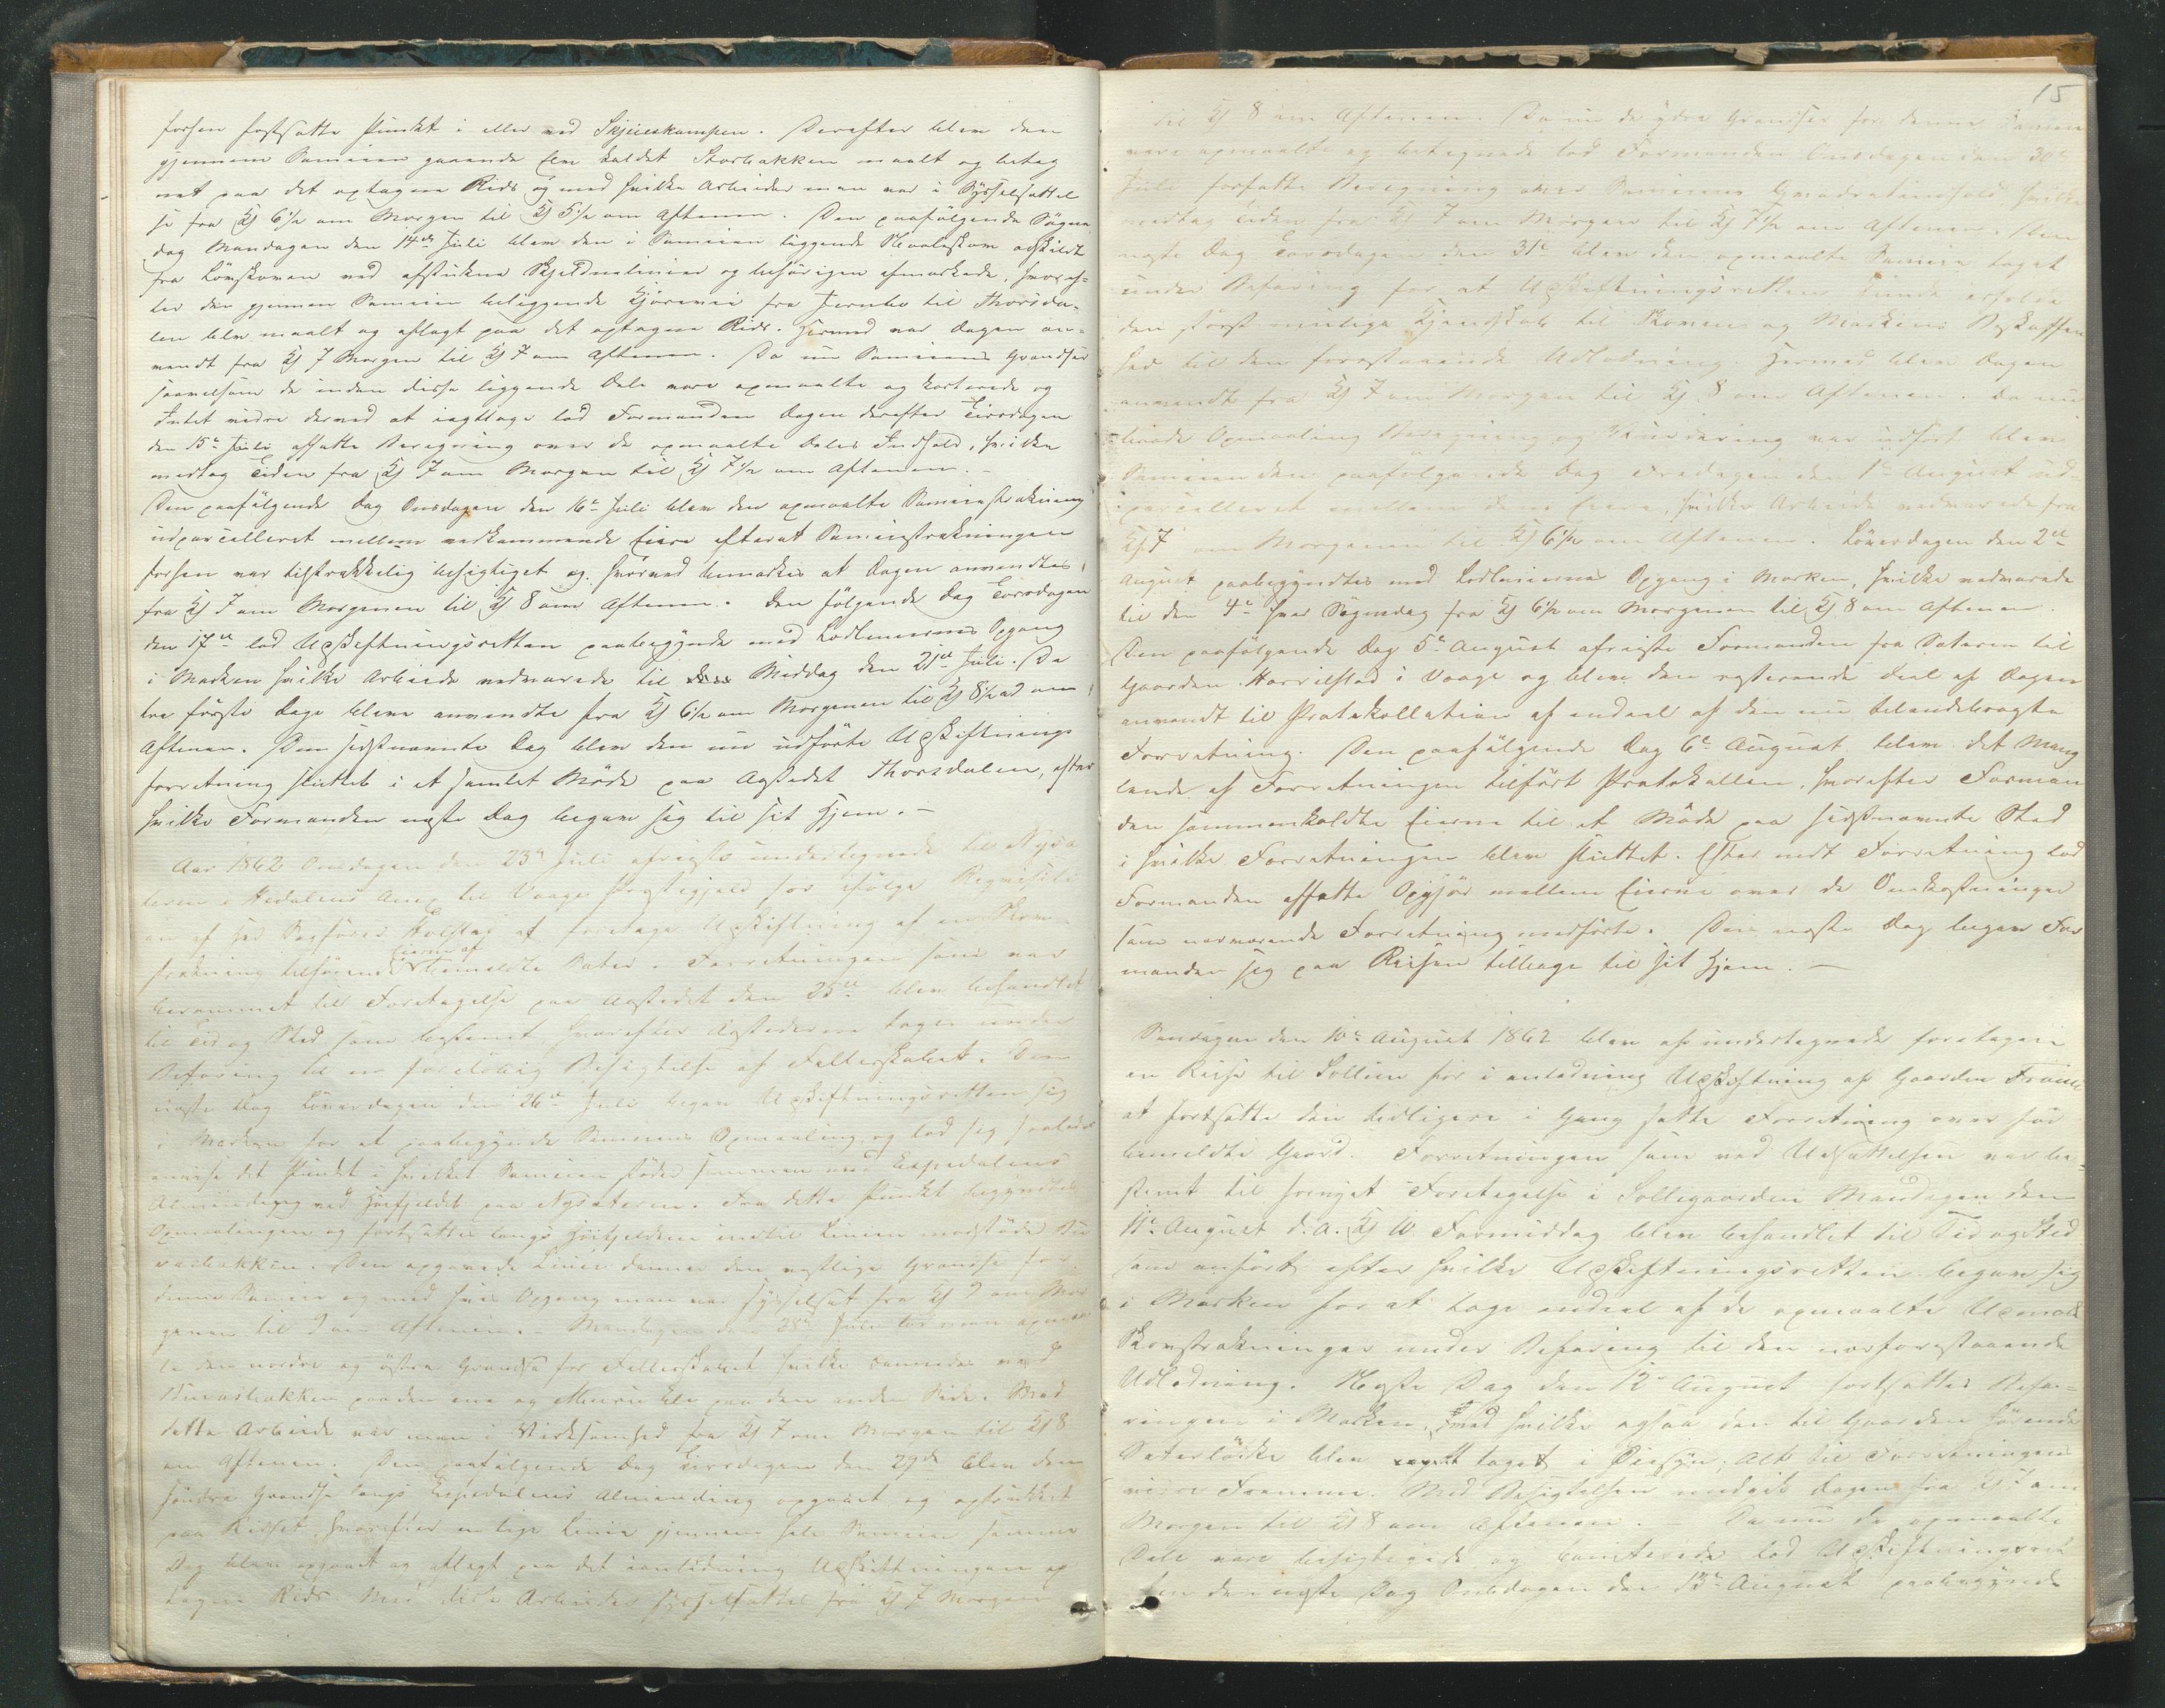 forhen fastsatte Punkt i eller ved Skjeieskampen. Derefter blev den
gjennem Sameien gaaende Elv kaldet Storbakken maalt og beteg
net paa det optagne Rids og med hvilke Arbeider man var i Sysselsættel
se fra Kl 6½ om Morgen til Kl 5½ om Aftenen. Den paafølgende Søgne
dag Mandagen den 14de Juli blev den i Sameien liggende Naaleskov adskildt
fra Løvskoven ved afstukne Skjeldnelinier og behørigen afmærkede, hvoref-
ter den gjennem Sameien beliggende Kjørevei fra til Thorsda-
len blev maalt og aflagt paa det optagne Rids. Hermed var Dagen an-
vendt fra Kl 7 Morgen til Kl 7 om Aftenen. Da nu Sameiens Grændser
saavelsom de inden disse liggende Dele vare opmaalte og karterede og
Intet videre dermed at iagttage lod Formanden Dagen derefter Tirsdagen
den 15de Juli affatte Beregning over de opmaalte Deles Indhold, hvilken
medtog Tiden fra Kl 7 om Morgen til Kl 7½ om Aftenen. –
Den paafølgende Dag Onsdagen den 16de Juli blev den opmaalte Sameiestrækning
udparcelleret mellem vedkommende Eiere efterat Sameiestrækningen
forhen var tilstrækkelig besigtiget og hvorved bemærkes at Dagen anvendtes
fra Kl 7 om Morgenen til Kl 8 om Aftenen. Den følgende Dag Torsdagen
den 17de lod Udskiftningsretten paabegynde med Lodliniernes Opgang
i Marken hvilke Arbeide vedvarede til Middag den 21de Juli. De
tre første Dage bleve anvendte fra Kl 6½ om Morgenen til Kl 8½ om
Aftenen. Den sidstnævnte Dag blev den nu udførte Udskiftnings
forretning sluttet i et samlet Møde paa Aastedet Thorsdalen, efter
hvilke Formanden næste Dag begav sig til sit Hjem. –
Aar 1862 Onsdagen den 23de Juli afreiste undertegnede til Nysæ
teren i Hedalens Anex til Vaage Præstegjeld for ifølge Reqvisiti
on af Hrd Sagfører at foretage Udskiftning af en Skov-
strækning tilhørende Eierne af bemeldte Sæter. Forretningen som var
berammet til Foretagelse paa Aastedet den 25de blev behandlet
til Tid og Sted som bestemt hvorefter Aastederne toges under
Befaring til en foreløbig Besigtelse af Fællesskabet. Den
næste Dag Løverdagen den 26de Juli begav Udskiftningsretten sig
i Marken for at paabegynde Sameiens Opmaaling og lod sig saaledes
anvise det Punkt i hvilket Sameien støder sammen med Espedalens
Alminding ved Høifjeldet paa Nysæteren. Fra dette Punkt begyndtes
Opmaalingen og fortsattes langs Høifjeldene indtil Linien modstøder
bækken. Den opgaaede Linie danner den vestlige Grændse for
denne Sameie og med hvis Opgang man var sysselsat fra Kl 7 om Mor
genen til 9 om Aftenen. – Mandagen den 28de Juli lod man opmaa
le den nordre og østre Grændse for Fællesskabet hvilke dannedes ved
bækken paa den ene og Elv paa den anden Side. Med
dette Arbeide var man i Virksomhed fra Kl 7 om Morgen til Kl 8
om Aftenen. Den paafølgende Dag Tirsdagen den 29de blev den
søndre Grændse langs Espedalens Alminding opgaaet og optrukket
paa Ridset, hvorefter en lige Linie gjennem hele Sameien samme
Dag blev opgaaet og aflagt paa det i anledning Udskiftningen op
tagne Rids. Med disse Arbeider sysselsattes fra Kl 7 Morgen
15
til Kl 8 om Aftenen. Da nu de ydre Grændser for denne Sameie
vare opmaalte og betegnede lod Formanden Onsdagen den 30te
Juli forfatte Beregning over Sameiens Qvadratindhold hvilke
medtog Tiden fra Kl 7 om Morgen til Kl 7½ om Aftenen. Den
næste Dag Torsdagen den 31te blev den opmaalte Sameie taget
under Befaring for at Udskiftningsretten kunde erholde
den størst mulige Kjendskab til Skovens og Markens Beskaffen
hed til den forestaaende Udlodning. Hermed blev Dagen
anvendt fra Kl 7 om Morgen til Kl 8 om Aftenen. Da nu
baade Opmaaling Beregning og Vurdering var udført blev
Sameien den paafølgende Dag Fredagen den 1te August ud-
parcelleret mellem dens Eiere, hvilke Arbeide vedvarede fra
Kl 7 om Morgenen til Kl 6½ om Aftenen. Løverdagen den 2den
August paabegyndtes med Lodliniernes Opgang i Marken, hvilke vedvarede
til den 4de hver Søgnedag fra Kl 6½ om Morgenen til Kl 8 om Aftenen
Den paafølgende Dag 5te August afreiste Formanden fra Sæteren til
Gaarden Harrilstad i Vaage og blev den resterende Deel af Dagen
anvendt til Protokollation af endeel af den nu tilendebragte
Forretning. Den paafølgende Dag 6te August blev det Mang
lende af Forretningen tilført Protokollen, hvorefter Forman
den sammenkaldte Eierne til et Møde paa sidstnævnte Sted
i hvilke Forretningen blev sluttet. Efter endt Forretning lod
Formanden affatte Opgjør mellem Eierne over de Omkostninger
som nærværende Forretning medførte. Den næste Dag begav For
manden sig paa Reisen tilbage til sit Hjem. –
Søndagen den 10de August 1862 blev af undertegnede foretagen
en Reise til Sollien for i anledning Udskiftning af Gaarden
at fortsætte den tidligere i Gang satte Forretning over før
bemeldte Gaard. Forretningen som ved Udsættelsen var be-
stemt til fornyet Foretagelse i Solliegaarden Mandagen den
11te August d. A. Kl 10 Formiddag blev behandlet til Tid og Sted
som anført efter hvilke Udskiftningsretten begav sig
i Marken for at tage endeel af de opmaalte
Skovstrækninger under Befaring til den nærforestaaende
Udlodning. Næste Dag den 12te August fortsattes Befa-
ringen i Marken, med hvilke ogsaa den til Gaarden hørende
Sæterløkke blev taget i Øiesyn, Alt til Forretningens
videre Fremme. Med Besigtelsen medgik Dagen fra Kl 7 om
Morgen til Kl 8 om Aftenen. – Da nu de opmaalte
Dele vare besigtigede og boniterede lod Udskiftningsret
ten den næste Dag Onsdagen den 13de August paabegynde